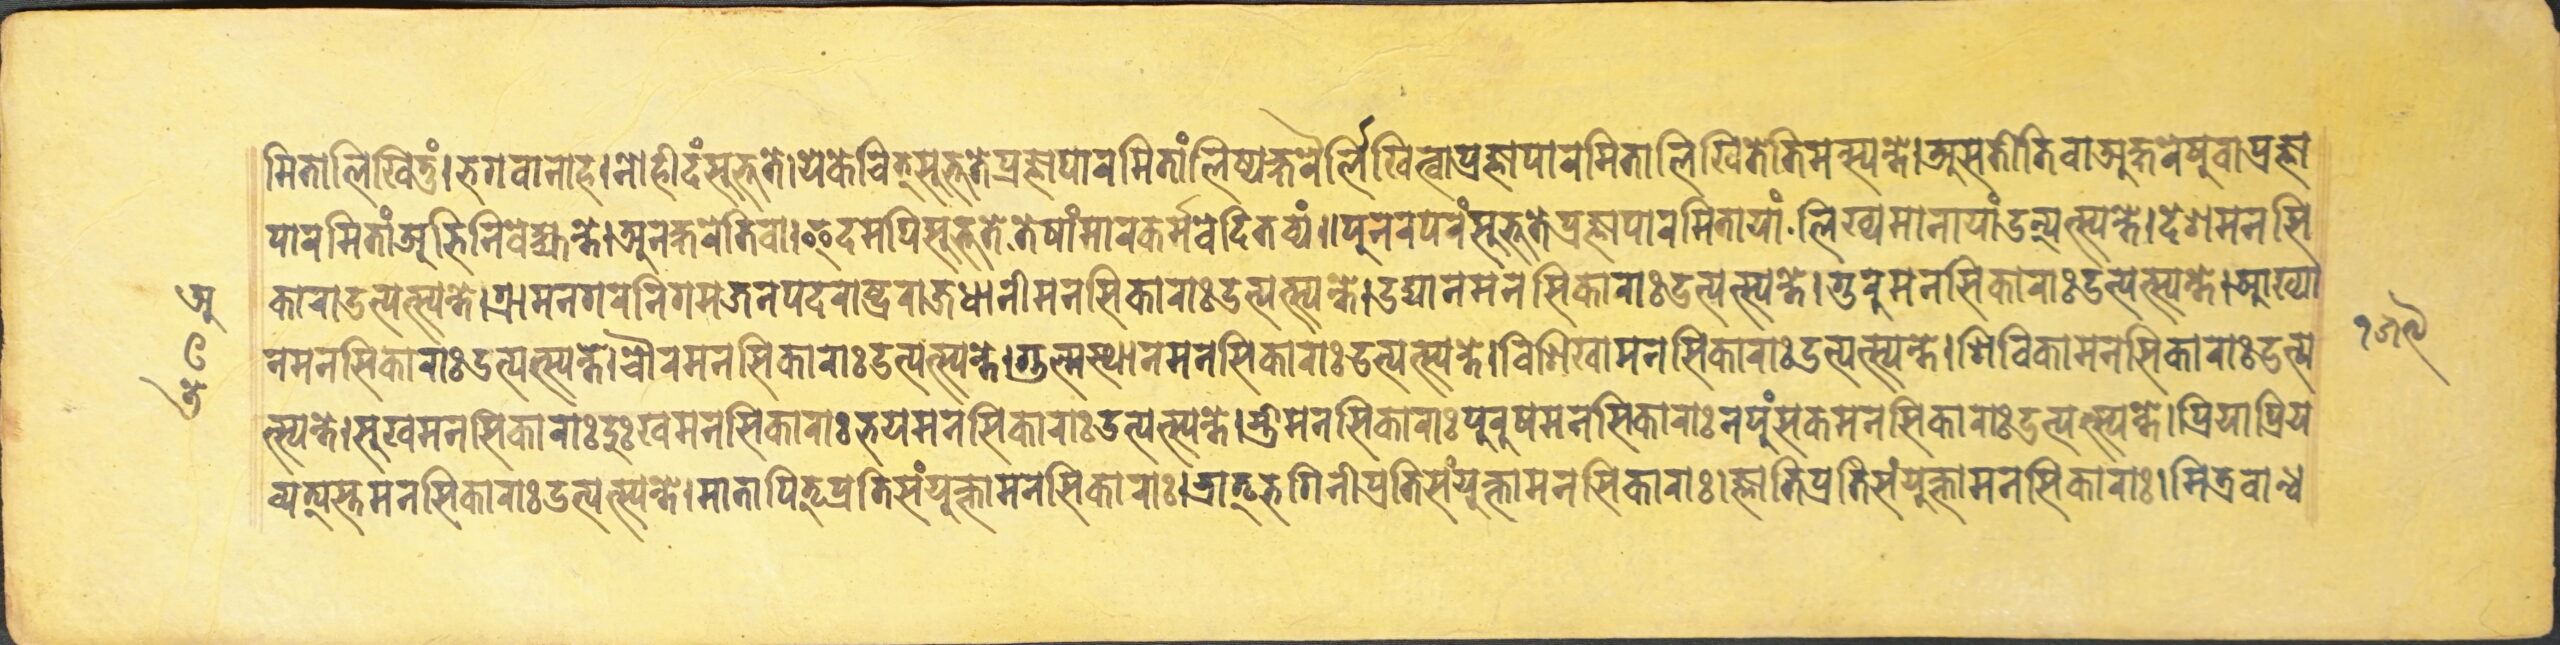 मिता लिखितुं। भगवानाह। नो हीदं सुभूते। ये केचित् सुभूते प्रज्ञापारमितां लिप्यक्षरैर्लिखित्वा प्रज्ञापारमिता लिखितेति मंस्यन्ते। असतीति वा अक्षरेषु वा प्रज्ञा
पारमितां अभिनिवेक्ष्यन्ते। अनक्षरेति वा। इदमपि सुभूते तेषां मारकर्म वेदितव्यं॥ पुनरपरं सुभूते प्रज्ञापारमितायां लिख्यमानायां उत्पत्स्यन्ते। देशमनसि
कारा उत्पत्स्यन्ते। ग्रामनगरनिगमजनपदराष्ट्रराजधानीमनसिकाराः उत्पत्स्यन्ते। उद्यानमनसिकाराः उत्पत्स्यन्ते। गुरुमनसिकाराः उत्पत्स्यन्ते। आख्या
नमनसिकाराः उत्पत्स्यन्ते। चौरमनसिकाराः उत्पत्स्यन्ते। गुल्मस्थानमनसिकाराः उत्पत्स्यन्ते। विशिखामनसिकाराः उत्पत्स्यन्ते। शिविकामनसिकाराः उत्प
त्स्यन्ते। सुखमनसिकाराः दुःखमनसिकाराः भयमनसिकाराः उत्पत्स्यन्ते। स्त्रीमनसिकाराः पुरुषमनसिकाराः नपुंसकमनसिकाराः उत्पत्स्यन्ते। प्रियाप्रिय
व्यत्यस्तमनसिकाराः उत्पत्स्यन्ते। मातापितृप्रतिसंयुक्ता मनसिकाराः। भ्रातृभगिनीप्रतिसंयुक्ता मनसिकाराः। ज्ञातिप्रतिसंयुक्ता मनसिकाराः। मित्रबान्ध